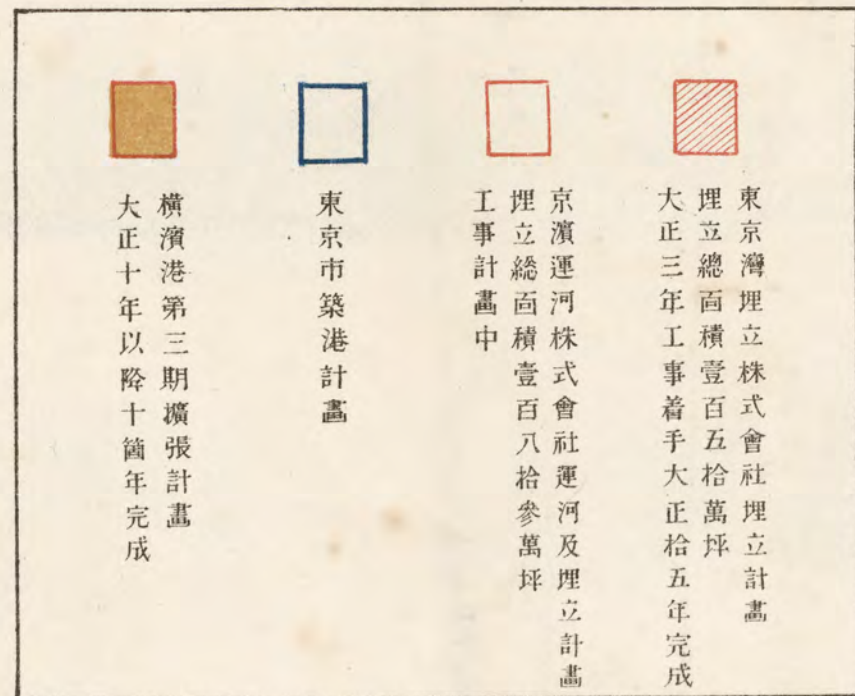 東京灣埋立株式會社埋立計畫
埋立總面積壹百五拾萬坪
大正三年工事着手大正拾五年完成
京濱運河株式會社運河及埋立計畫
埋立総面積壹百八拾參萬坪
工事計畫中
東京市築港計畫
橫濱港第三期擴張計畫
大正十年以降十箇年完成